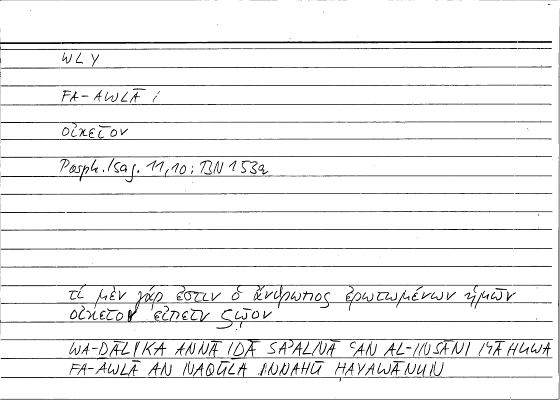 WLY
FA-AWLĀ
οἰκεῖον
Porph. Isag. 11,10; BN 153a
τί μὲν γάρ ἐστιν ὁ ἄνθρωπος ἐρωτωμένων ἡμῶν
οἰκεῖον εἰπεῖν ζῷον
WA-ḎĀLIKA ANNĀ IḎĀ SAʾALNĀ ʿAN AL-INSĀNI MĀ HUWA
FA-AWLĀ AN NAQŪLA INNAHŪ ḤAYAWĀNUN